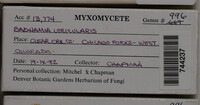 Acc # 13,774 MYXOMYCETE Genus # 996
BADHAMIA UTRICULARIS
Place: CLEAR CREEK CO. CHICAGO FORKS - WEST
Date: 19-IX-92 Collector: CHAPMAN
Personal collection: Mitchel & Chapman
Denver Botanic Gardens Herbarium of Fungi
744237